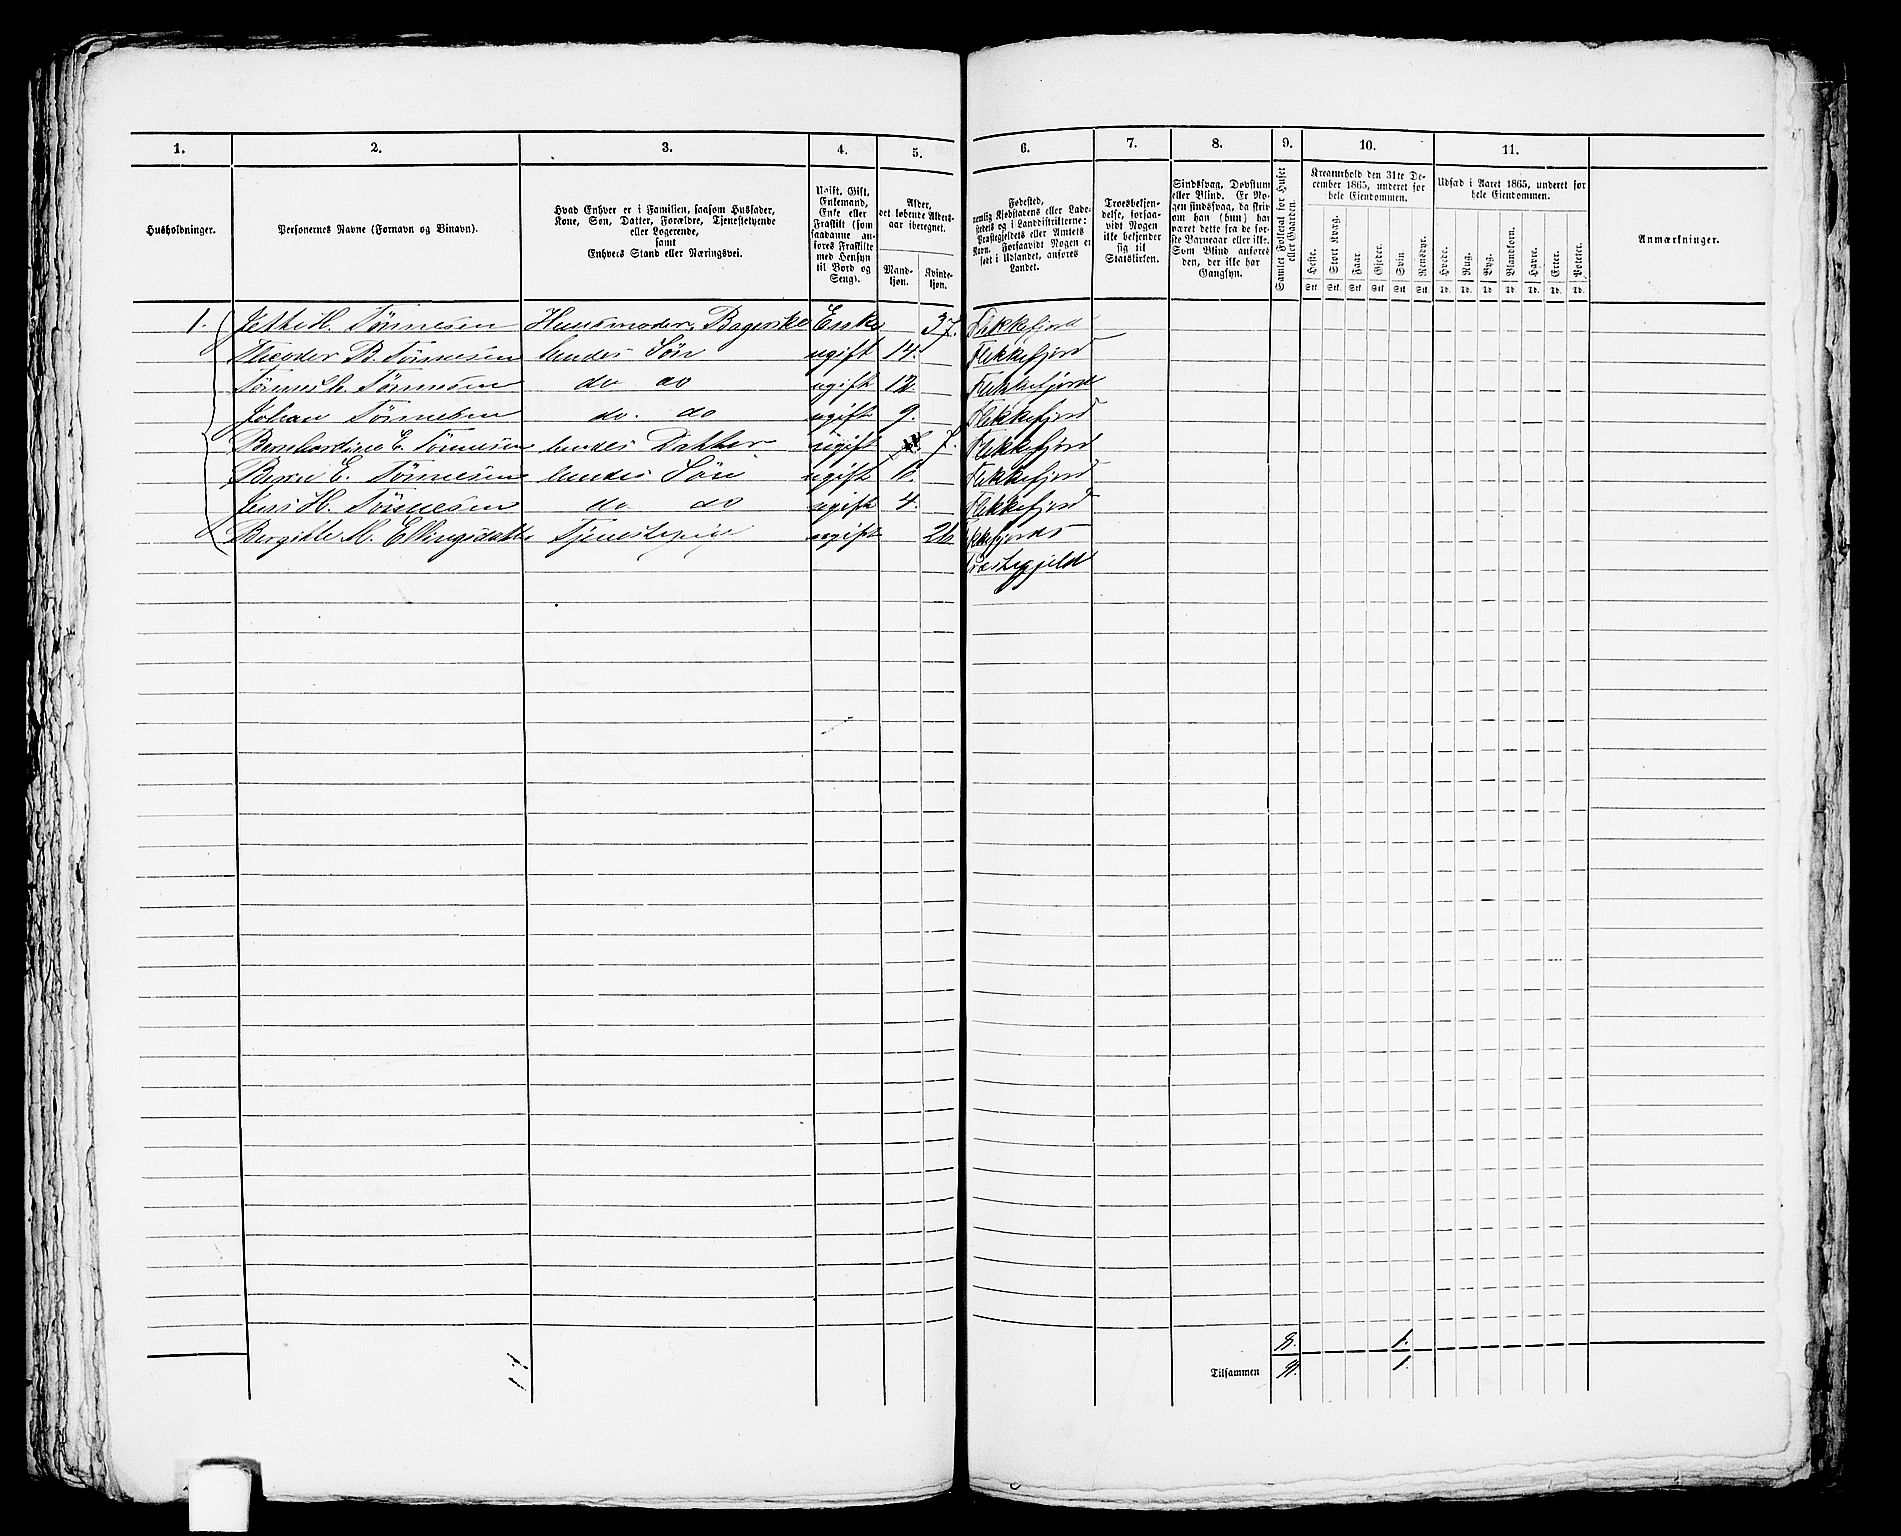 1. 2. 3. 4. 5. 6. 7. 8. 9. 10. 11.
Husholdninger.
Personernes Navne (Fornavn og Binavn).
Hvad Enhver er i Familien, saasom Husfader,
Kone, Søn, Datter, Forældre, Tjenestetyende
eller Logerende,
samt
Enhvers Stand eller Næringsvei.
Ugift, Gift,
Enkemand,
Enke eller
Fraskilt (som
saadanne an-
føres Fraskilte
med Hensyn
til Bord og
Seng).
Alder,
det løbende Alders-
aar iberegnet.
Mand-
kjøn.
Kvinde-
kjøn.
Fødested,
nemlig Kjøbstadens eller Lade-
stedets og i Landdistrikterne:
Præstegjeldets eller Amtets
Navn. Forsaavidt Nogen er
født i Udlandet, anføres
Landet.
Troesbekjen-
delse, forsaa-
vidt Nogen
ikke bekjender
sig til
Statskirken.
Sindssvag, Døvstum
eller Blind. Er No-
gen sindssvag, da skriv
om han (hun) har
været dette fra de før-
ste Barneaar eller ikke.
Som Blind anføres
den, der ikke har
Gangsyn.
Samlet Folketal for Huset
eller Gaarden.
Kreaturhold den 31te De-
cember 1865, underet for
hele Eiendommen.
Heste. Stort Kvæg. Faar. Gjeder. Svin. Rensdyr.
Stk. Stk. Stk. Stk. Stk. Stk.
Udsæd i Aaret 1865, underet for
hele Eiendommen.
Hvede. Rug. Byg. Blandkorn. Havre. Erter. Poteter.
Td. Td. Td. Td. Td. Td. Td.
Anmærkninger.
1. Tønnesen Huusmoder, Enke 37. Flekkefjord
Theodor B. Tønnesen hendes Søn ugift 14. Flekkefjord
Tønnesen do do ugift 12. Flekkefjord
Johan Tønnesen do. do ugift 9. Flekkefjord
Bernhardine E. Tønnesen hendes Datter ugift 7. Flekkefjord
E. Tønnesen hendes Søn ugift 6. Flekkefjord
Jens H. Tønnesen do do ugift 4. Flekkefjord
Bergitte M. Ellingsdatter Tjenestepige ugift 26 Flekkefjords
Præstegjeld
8. 1.
Tilsammen 1.